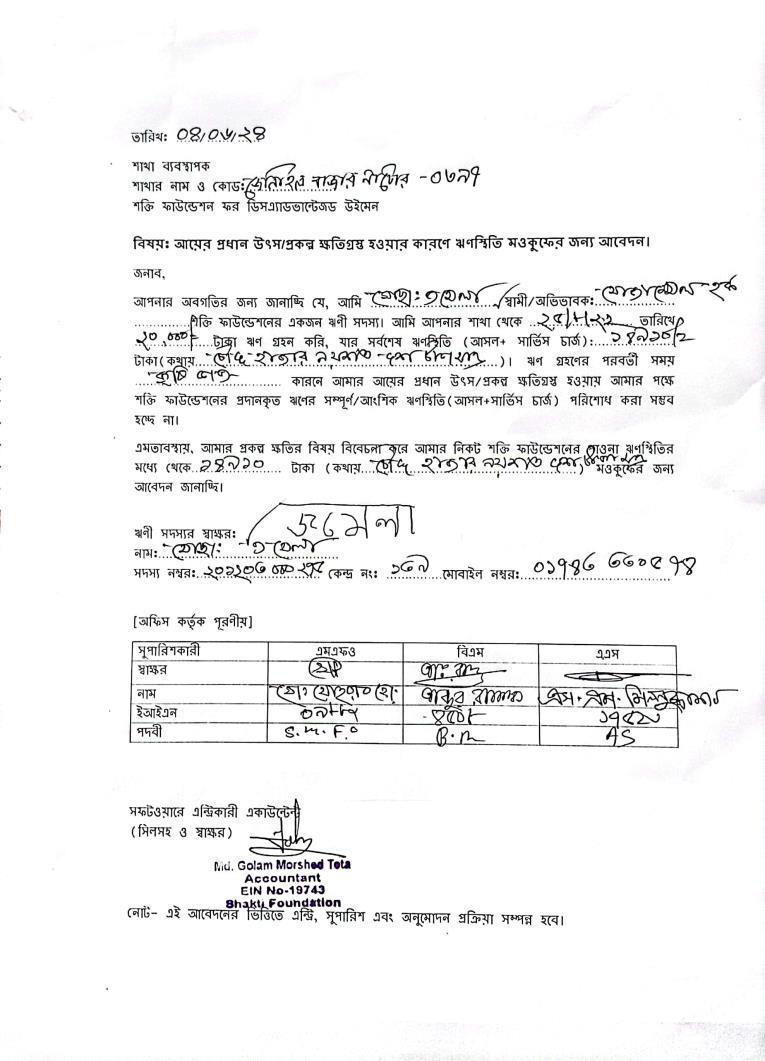 তারিখ: ০৪/০৬/২৪
শাখা ব্যবস্থাপক
শাখার নাম ও কোড: বাজার নাটোর -০৩৯৭
শক্তি ফাউন্ডেশন ফর ডিসএ্যাডভান্টেজড উইমেন
বিষয়: আয়ের প্রধান উৎস/প্রকল্প ক্ষতিগ্রস্থ হওয়ার কারণে ঋণস্থিতি মওকুফের জন্য আবেদন।
জনাব,
আপনার অবগতির জন্য জানাচ্ছি যে, আমি মোছা: স্বামী/অভিভাবক: হক
শক্তি ফাউন্ডেশনের একজন ঋণী সদস্য। আমি আপনার শাখা থেকে তারিখে
২০,০০০/- টাকা ঋণ গ্রহন করি, যার সর্বশেষ ঋণস্থিতি (আসল+ সার্ভিস চার্জ): ১৪৯১০/=
টাকা (কথায় চৌদ্দ হাজার নয়শত দশ টাকা মাত্র)। ঋণ গ্রহণের পরবর্তী সময়
কারনে আমার আয়ের প্রধান উৎস/প্রকল্প ক্ষতিগ্রস্থ হওয়ায় আমার পক্ষে
শক্তি ফাউন্ডেশনের প্রদানকৃত ঋণের সম্পূর্ণ/আংশিক ঋণস্থিতি (আসল+সার্ভিস চার্জ) পরিশোধ করা সম্ভব
হচ্ছে না।
এমতাবস্থায়, আমার প্রকল্প ক্ষতির বিষয় বিবেচনা করে আমার নিকট শক্তি ফাউন্ডেশনের পাওনা ঋণস্থিতির
মধ্যে থেকে ১৪৯১০ টাকা (কথায় চৌদ্দ হাজার নয়শত দশ টাকা মাত্র) মওকুফের জন্য
আবেদন জানাচ্ছি।
ঋণী সদস্যর স্বাক্ষর: জমেলা
নাম: মোছা: জমেলা
সদস্য নম্বর: কেন্দ্র নং: মোবাইল নম্বর:
[অফিস কর্তৃক পূরণীয়]
সুপারিশকারী এমএফও বিএম এএস
স্বাক্ষর
নাম এস. এম.
ইআইএন
পদবী S.M.F.O B.M AS
সফটওয়ারে এন্ট্রিকারী একাউন্টেন্ট
(সিলসহ ও স্বাক্ষর)
Md. Golam Morshed Tota
Accountant
EIN No-19743
Shakti Foundation
নোট- এই আবেদনের ভিত্তিতে এন্ট্রি, সুপারিশ এবং অনুমোদন প্রক্রিয়া সম্পন্ন হবে।